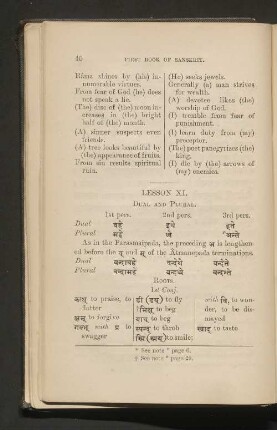 36 FIRST BOOK OF SANSKRIT.
Râma shines by (his) in-
numerable virtues.
From fear of God (he) does
not speak a lie.
(The) disc of (the) moon in-
creases in (the) bright
half of (the) month.
(A) sinner suspects even
friends.
(A) tree looks beautiful by
(the) appearance of fruits.
From sin results spiritual
ruin.
(He) seeks jewels.
Generally (a) man strives
for wealth.
(A) devotee likes (the)
worship of God.
(I) tremble from fear of
punishment.
(I) learn duty from (my)
preceptor.
(The) poet panegyrizes (the)
king.
(I) die by (the) arrows of
(my) enemies.
LESSON XI.
DUAL AND PLURAL.
1st pers. 2nd pers. 3rd pers.
Dual वहे इथे इते
Plural महे ध्वे अन्ते
As in the Parasmaipada, the preceding अ is lengthen-
ed before the व् and म् of the Âtmanepada terminations.
Dual वन्दावहे वन्देथे वन्देते
Plural वन्दामहे वन्दध्वे वन्दन्ते
ROOTS.
1st Conj.
to praise, to
flatter
to forgive
with प्र to
swagger
डी (डय्) to fly
भिक्ष् to beg
याच् to beg
स्पन्द् to throb
स्मि (स्मय्) to smile;
with वि, to won-
der, to be dis-
mayed
स्वाद् to taste
* See note * page 6.
† See note * page 26.